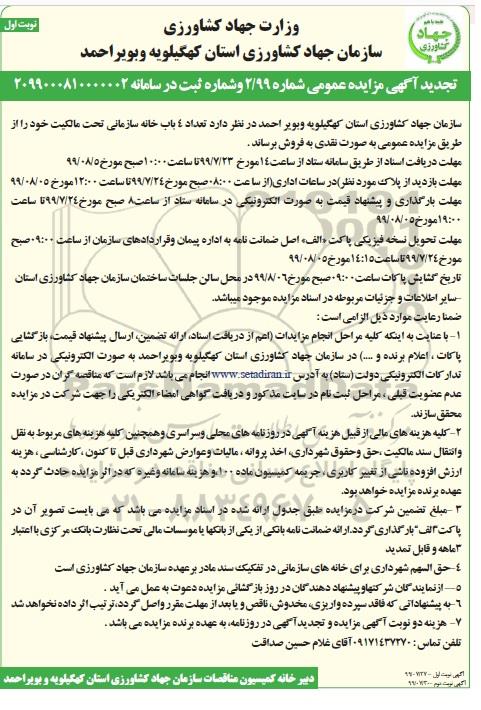 نوبت اول
وزارت جهاد کشاورزی
سازمان جهاد کشاورزی استان کهگیلویه وبویراحمد
جهاد کشاورزی
تجدید آگهی مزایده عمومی شماره ۲/۹۹ وشماره ثبت در سامانه ۲۰۹۹۰۰۰۸۱۰۰۰۰۰۰۲
سازمان جهاد کشاورزی استان کهگیلویه وبویر احمد در نظر دارد تعداد ۴ باب خانه سازمانی تحت مالکیت خود را از
طریق مزایده عمومی به صورت نقدی به فروش برساند .
مهلت دریافت اسناد از طریق سامانه ستاد از ساعت۱۴مورخ ۹۹/۷/۲۳ تا ساعت۱۰:۰۰صبح مورخ۹۹/۰۸/۵
مهلت بازدید از پلاک مورد نظر)در ساعات اداری(از ساعت ۰۸:۰۰صبح مورخ۹۹/۷/۲۴تا ساعت ۱۲:۰۰مورخ ۹۹/۰۸/۰۵
مهلت بارگذاری و پیشنهاد قیمت به صورت الکترونیکی در سامانه ستاد از ساعت۸ صبح مورخ۹۹/۷/۲۴تا ساعت
۱۹:۰۰مورخ۹۹/۰۸/۰۵
مهلت تحویل نسخه فیزیکی پاکت «الف» اصل ضمانت نامه به اداره پیمان وقراردادهای سازمان از ساعت ۰۹:۰۰صبح
مورخ۹۹/۷/۲۴تاساعت۱۴:۱۵مورخ ۹۹/۰۸/۰۵
تاریخ گشایش پاکات ساعت۰۹:۰۰صبح مورخ۹۹/۸/۰۶در محل سالن جلسات ساختمان سازمان جهاد کشاورزی استان
-سایر اطلاعات و جزئیات مربوطه در اسناد مزایده موجود میباشد.
ضمنا رعایت موارد ذیل الزامی است :
۱- با عنایت به اینکه کلیه مراحل انجام مزایدات (اعم از دریافت اسناد، ارائه تضمین، ارسال پیشنهاد قیمت، بازگشایی
پاکات ، اعلام برنده و ....) در سازمان جهاد کشاورزی استان کهگیلویه وبویراحمد به صورت الکترونیکی در سامانه
تدارکات الکترونیکی دولت (ستاد) به آدرس www.setadiran.ir انجام می باشد لازم است که مناقصه گران در صورت
عدم عضویت قبلی ، مراحل ثبت نام در سایت مذکور و دریافت گواهی امضاء الکتریکی را جهت شرکت در مزایده
محقق سازند.
۲-کلیه هزینه های مالی از قبیل هزینه آگهی در روزنامه های محلی وسراسری وهمچنین کلیه هزینه های مربوط به نقل
وانتقال سند مالکیت ،حق وحقوق شهرداری، اخذ پروانه ، مالیات وعوارض شهرداری قبل تا کنون ، کارشناسی ، هزینه
ارزش افزوده ناشی از تغییر کاربری ، جریمه کمیسیون ماده ۱۰۰،و هزینه سامانه وغیره که در اثر مزایده حادث گردد به
عهده برنده مزایده خواهد بود.
۳ -مبلغ تضمین شرکت درمزایده طبق جدول ارائه شده در اسناد مزایده می باشد که می بایست تصویر آن در
پاکت"الف"بارگذاری گردد.ارائه ضمانت نامه بانکی از یکی از بانکها یا موسسات مالی تحت نظارت بانک مرکزی با اعتبار
۳ماهه و قابل تمدید
۴-حق السهم شهرداری برای خانه های سازمانی در تفکیک سند مادر بر عهده سازمان جهاد کشاورزی است
۵— از نمایندگان شرکتهاوپیشنهاد دهندگان در روز بازگشائی مزایده دعوت به عمل می آید .
۶-به پیشنهاداتی که فاقد سپرده واریزی، مخدوش، ناقص و یا بعد از مهلت مقرر واصل گردد،ترتیب اثر داده نخواهد شد
۷- هزینه دو نوبت آگهی مزایده و تجدیدآگهی در روزنامه، به عهده برنده مزایده می باشد .
تلفن تماس : ۰۹۱۷۱۴۳۷۲۷۰آقای غلام حسین صداقت
دبیر خانه کمیسیون مناقصات سازمان جهاد کشاورزی استان کهگیلویه و بویراحمد
آگهی نوبت اول -۹۹/۰۷/۲۷
آگهی نوبت دوم -۹۹/۰۷/۳۰
ParsNamadData
۰۲۱-۸۸۳۴۹۶۷۰